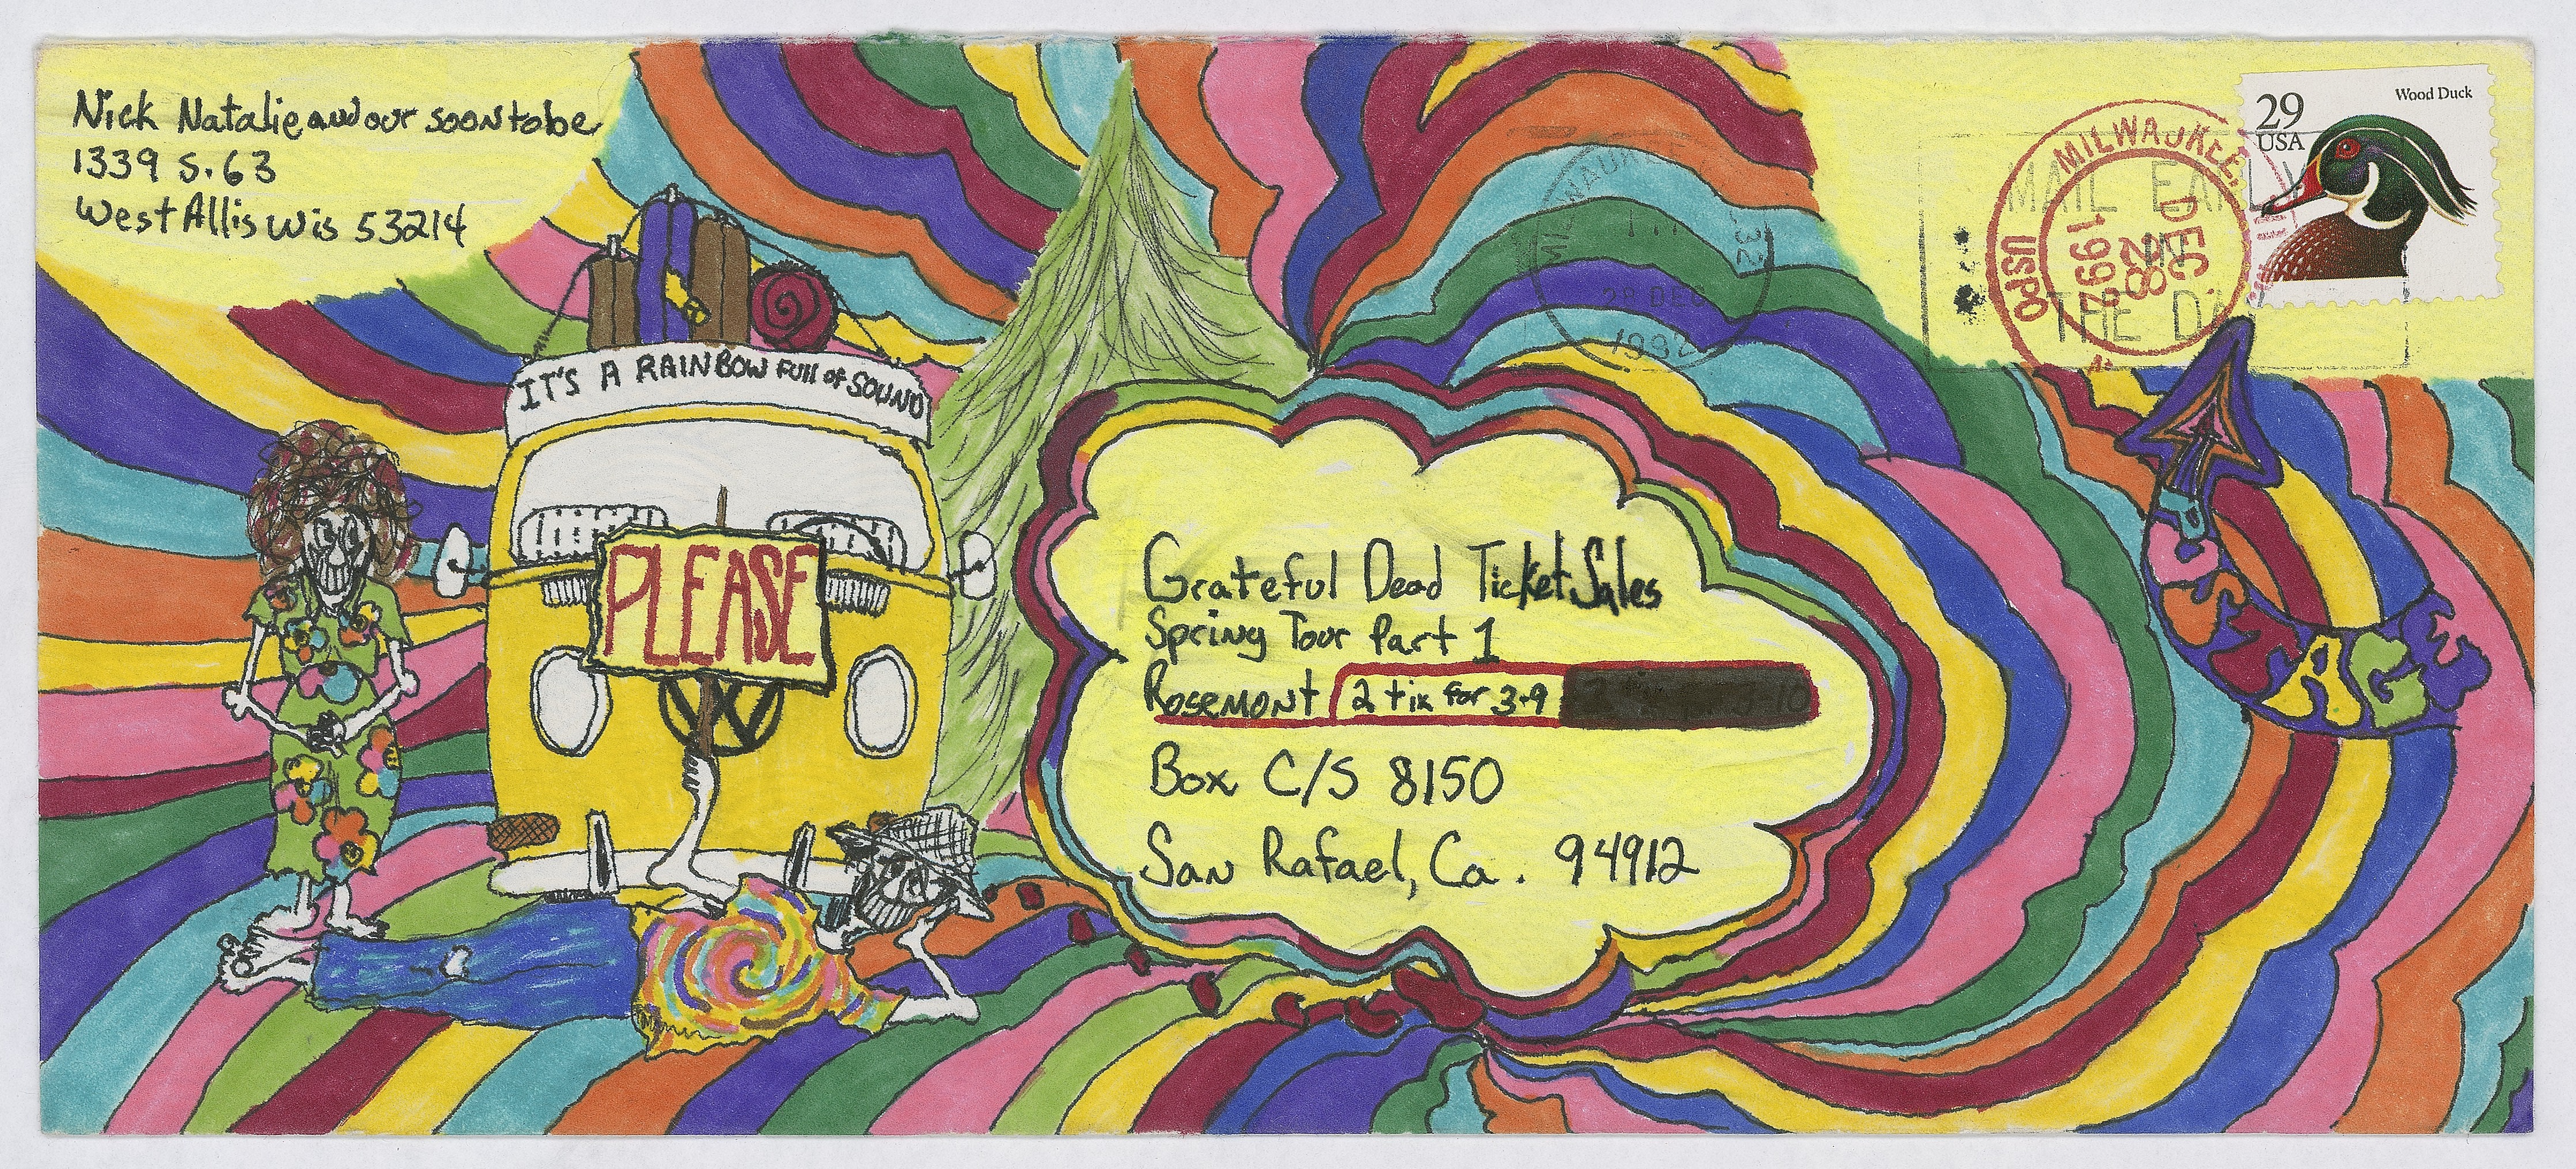 Nick Natalie and our soon to be
1339 S. 63
West Allis Wis 53214
29
USA
Wood Duck
MILWAUKEE,
DEC
28
1992
USPO
MAIL EARLY
IN
THE DAY
MILWAUKEE
532
28 DEC
1992
IT'S A RAINBOW FULL of SOUND
PLEASE
Grateful Dead Ticket Sales
Spring Tour Part 1
Rosemont 2 tix for 3-9
Box C/S 8150
San Rafael, Ca. 94912